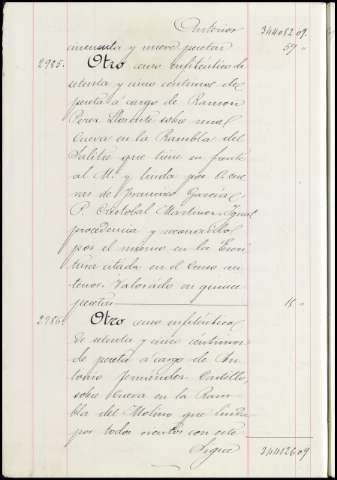 Anterior 344052 09.
cincuenta y nueve pesetas 59 "
2985. Otro censo enfitéutico de
setenta y cinco centimos de
peseta á cargo de Ramon
Perez Llorente sobre una
Cueva en la Rambla del
Salitre que tiene su frente
al M. y linda por O. cue
vas de Francisco García
P. Cristobal Martinez. Igual
procedencia y reconocido
por el mismo en la Escri
tura citada en el censo an
terior. Valorado en quince
pesetas 15 "
2986. Otro censo enfitéutico
de setenta y cinco céntimos
de peseta á cargo de An
tonio Fernandez Castillo,
sobre Cueva en la Ram
bla del Molino que linda
por todos vientos con este
Sigue 344126 09